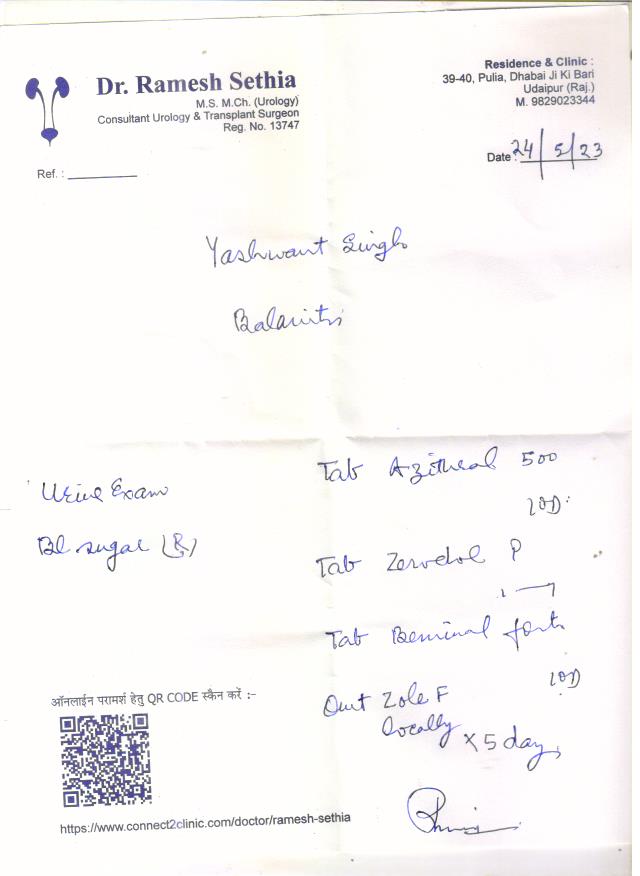 Dr. Ramesh Sethia
M.S. M.Ch. (Urology)
Consultant Urology & Transplant Surgeon
Reg. No. 13747
Residence & Clinic :
39-40, Pulia, Dhabai Ji Ki Bari
Udaipur (Raj.)
M. 9829023344
Ref. :
Date : 24/5/23
Yashwant Singh
Balanitis
Urine Exam
Bl sugar (R)
Tab Azithral 500
1OD
Tab Zerodol P
1 — 1
Tab Beminal forte
1OD
Oint Zole F
locally x 5 days
ऑनलाईन परामर्श हेतु QR CODE स्कैन करें :-
https://www.connect2clinic.com/doctor/ramesh-sethia